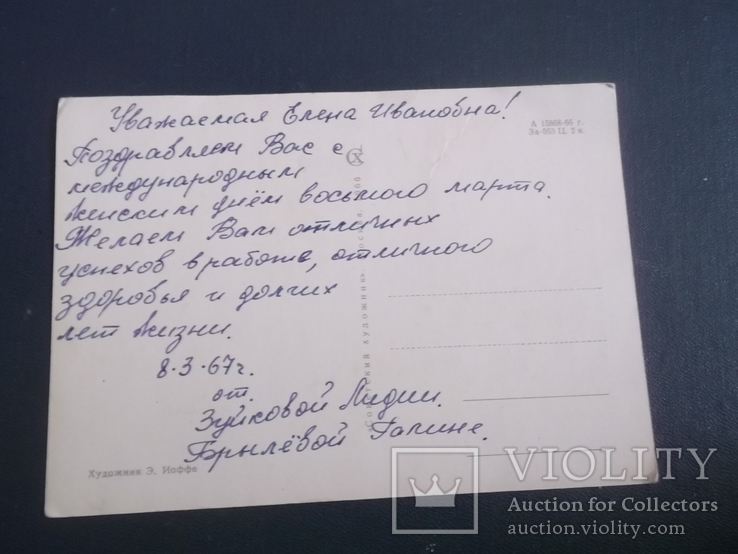 Уважаемая Елена Ивановна!
Поздравляем Вас с
международным
женским днём восьмого марта.
Желаем Вам отличных
успехов в работе, отличного
здоровья и долгих
лет жизни.
8.3.67г.
от.
Зуйковой Лидии.
Брылёвой Галине.
А 15868-66 г.
Ц. 3 к.
«Советский художник»
Художник Э. Иоффе
VIOLITY
Auction for Collectors
auction.violity.com